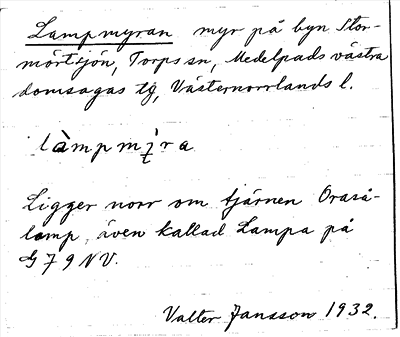 Lampmyran myr på byn Stor-
mörtsjön, Torps sn, Medelpads västra
domsagas tg, Västernorrlands l.
làmpmỳra
Ligger norr om tjärnen Oraså-
lamp, även kallad Lampa på
G 79 NV.
Valter Jansson 1932.